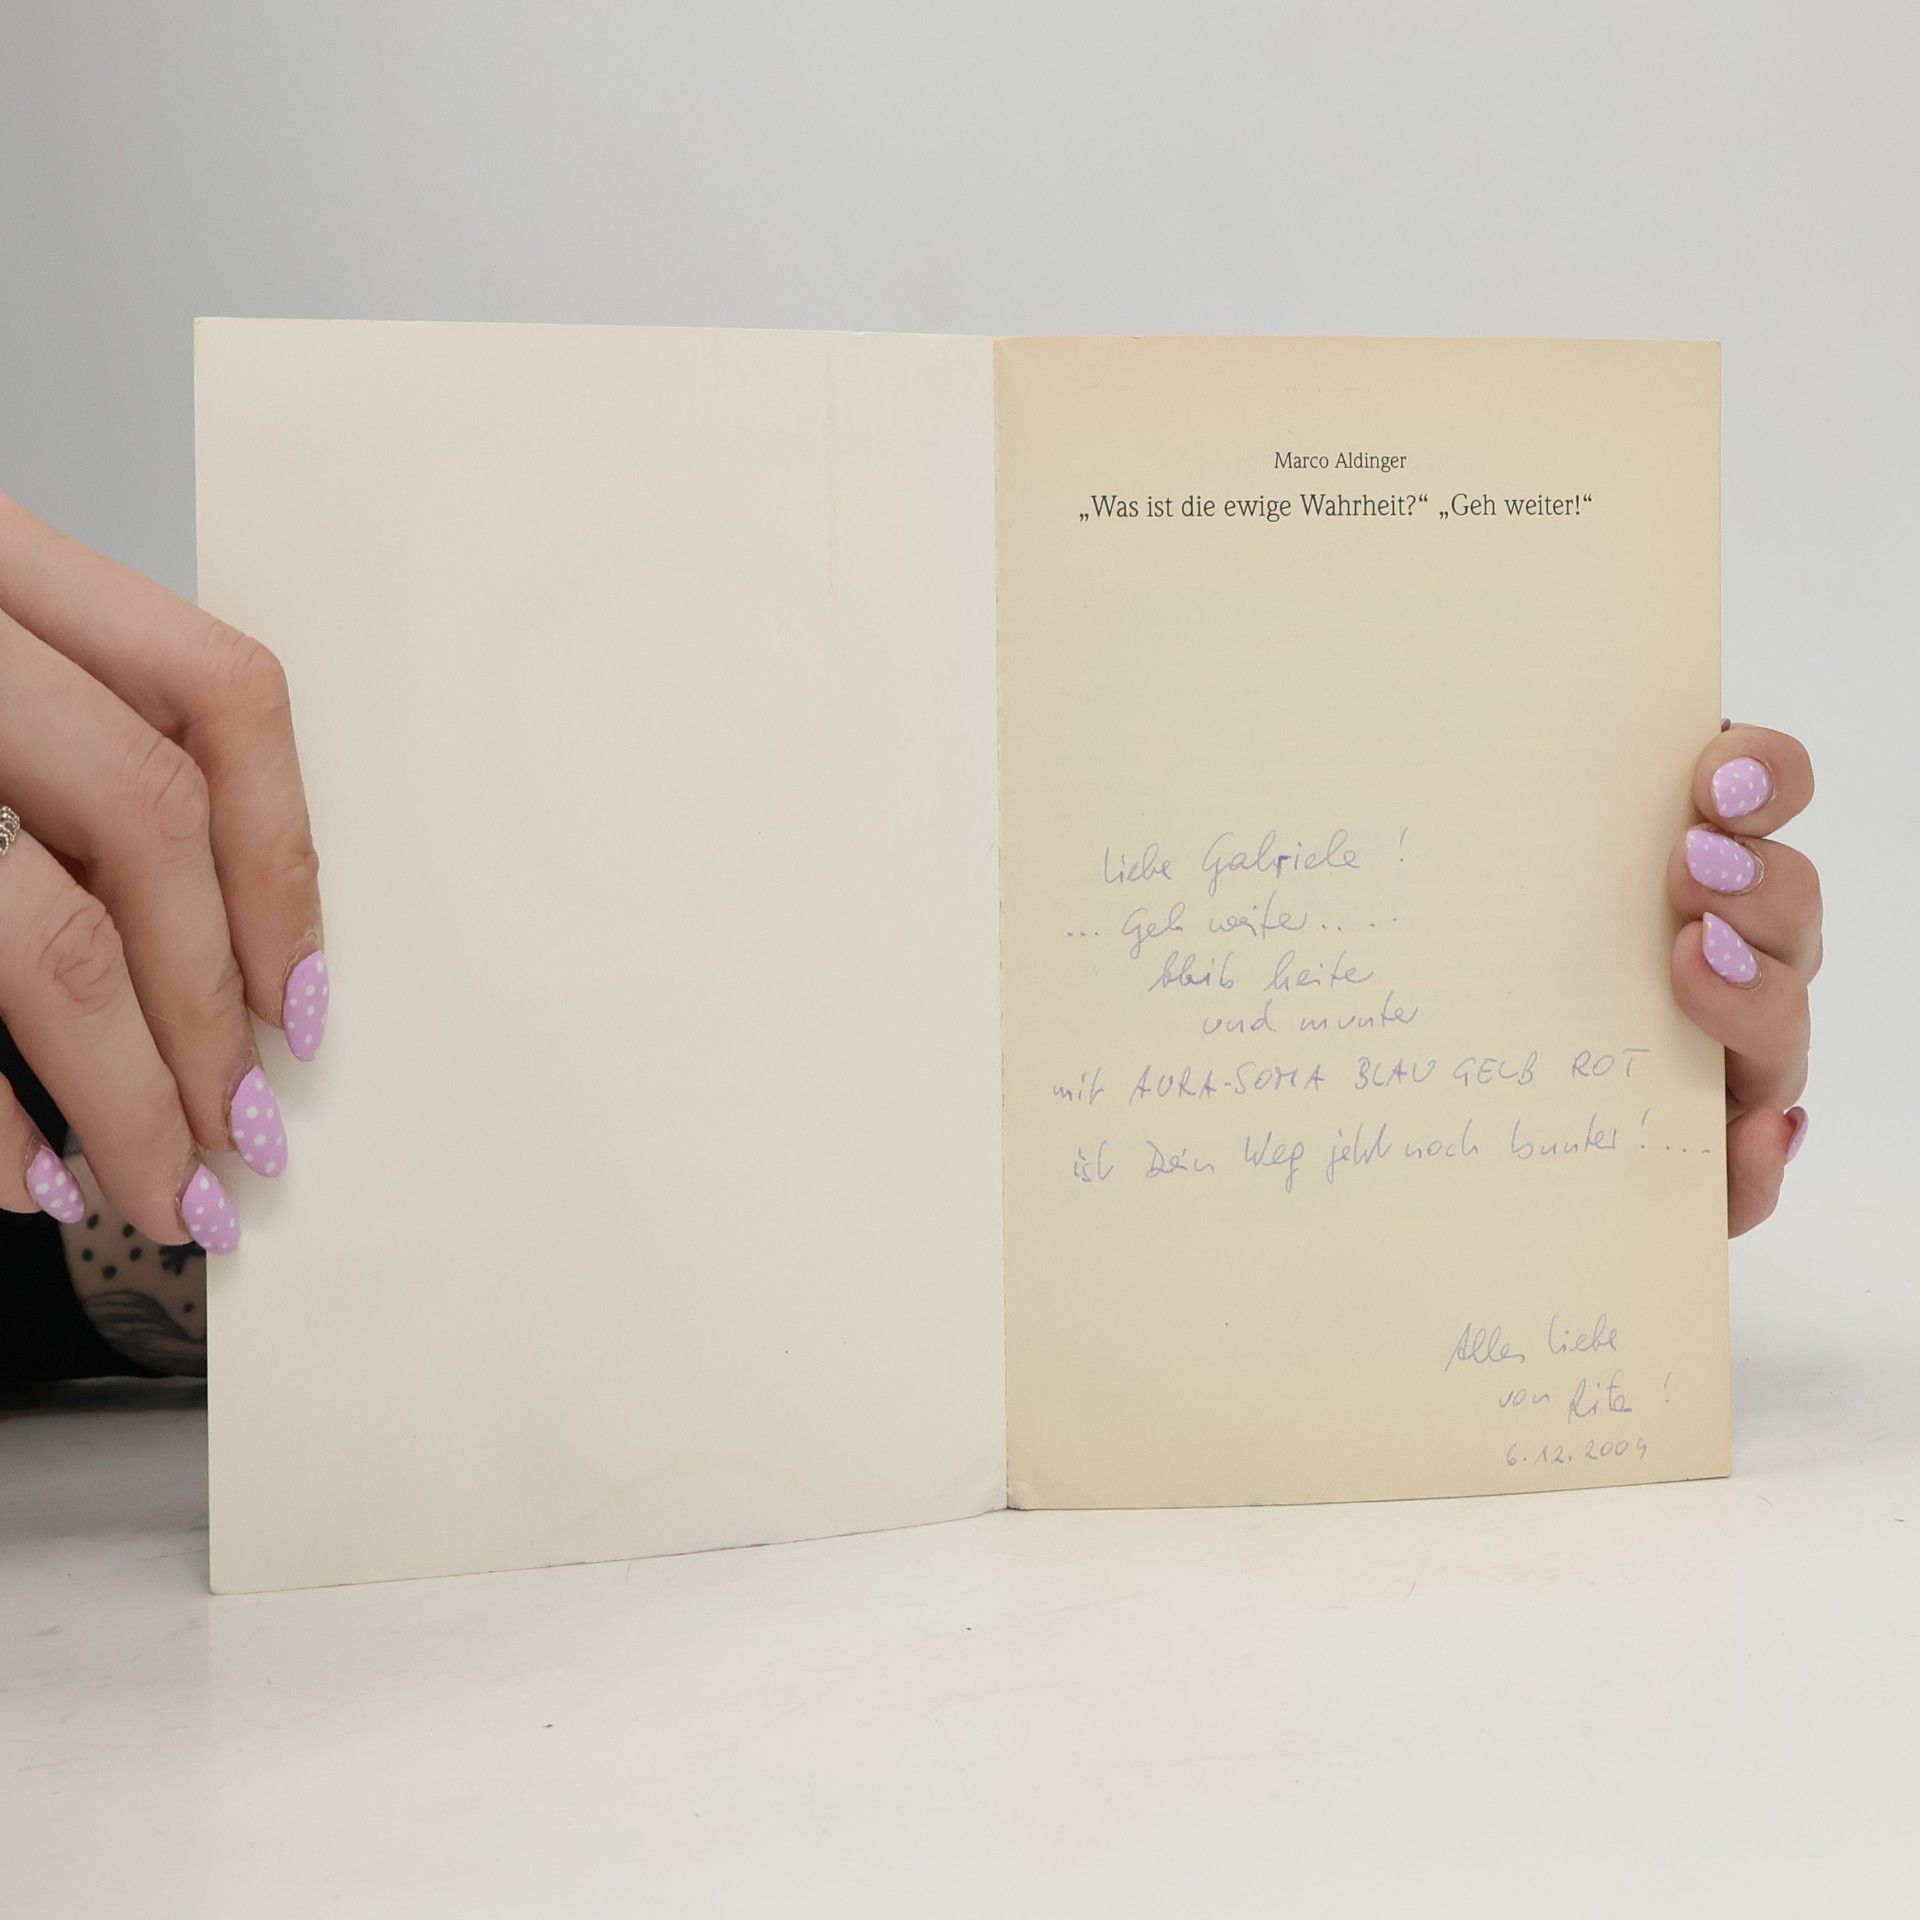 Marco Aldinger
„Was ist die ewige Wahrheit?“ „Geh weiter!“
Liebe Gabriele !
... Geh weiter.. ..
bleib heiter
und munter
mit AURA-SOMA BLAU GELB ROT
ist Dein Weg jetzt noch bunter! ...
Alles Liebe
von Rita !
6.12.2004